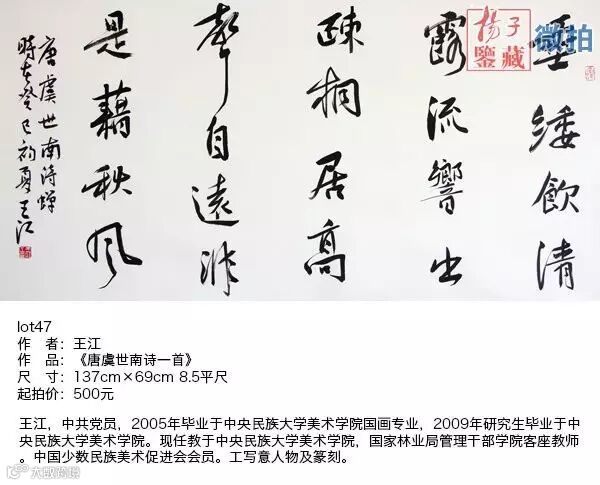 揚子
鑒藏
微拍
垂緌飲清
露流響出
疎桐居高
聲自遠非
是藉秋风
唐虞世南诗蝉
时在癸巳初夏王江
lot47
作 者：王江
作 品：《唐虞世南诗一首》
尺 寸：137cm×69cm 8.5平尺
起拍价：500元
王江，中共党员，2005年毕业于中央民族大学美术学院国画专业，2009年研究生毕业于中
央民族大学美术学院。现任教于中央民族大学美术学院，国家林业局管理干部学院客座教师
。中国少数民族美术促进会会员。工写意人物及篆刻。